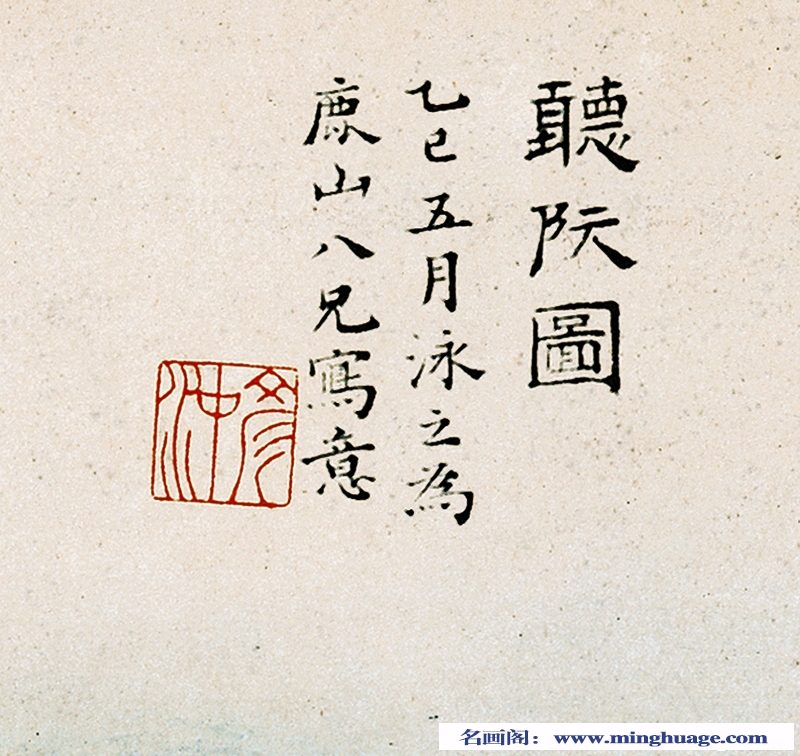 聽阮圖
乙巳五月泳之為
鹿山八兄寫意
彥沖
名画阁：www.minghuage.com